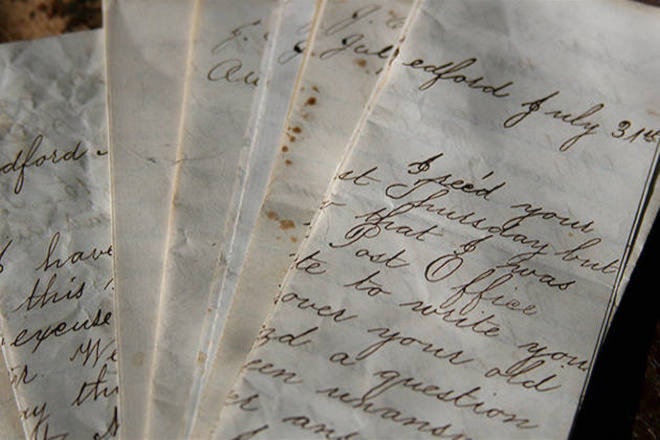 dford
I have
this
excuse
We
J.
Au
J.
J. Jul
edford July 31st
I rec'd your
st Thursday but
that I was
Post Office
te to write you
over your old
d a question
een unansw